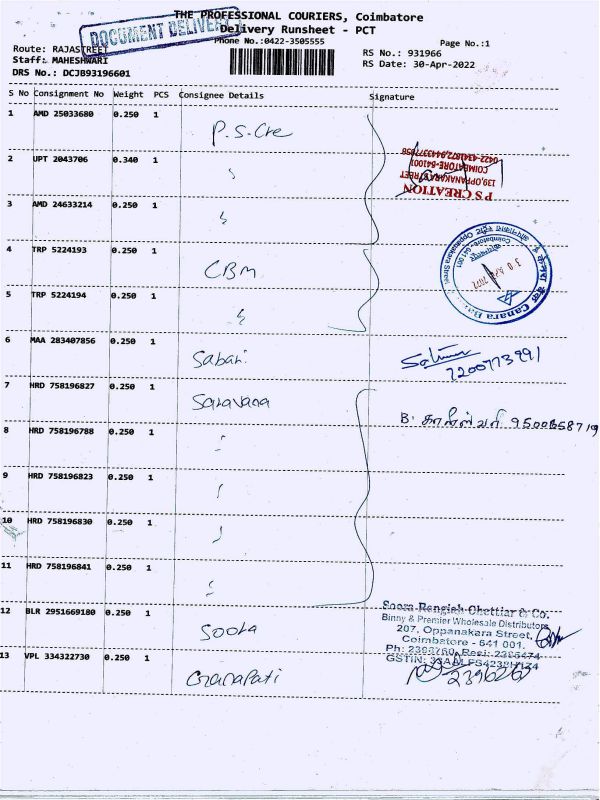 THE PROFESSIONAL COURIERS, Coimbatore
DOCUMENT DELIVERY
Delivery Runsheet - PCT
Phone No.:0422-3505555
Page No.:1
Route: RAJASTREET
RS No.: 931966
Staff: MAHESHWARI
RS Date: 30-Apr-2022
DRS No.: DCJB93196601
S No Consignment No Weight PCS Consignee Details Signature
1 AMD 25033680 0.250 1 P.S.Cre
P S CREATION
139,OPPANAKARA STREET
COIMBATORE-641001
2 UPT 2043706 0.340 1 "
3 AMD 24633214 0.250 1 "
4 TRP 5224193 0.250 1 CBM
Canara Ba
Oppanakara Street
Coimbatore - 641 001
5 TRP 5224194 0.250 1 "
6 MAA 283407856 0.250 1 Sabari
7 HRD 758196827 0.250 1 Saravana
8 HRD 758196788 0.250 1 "
9 HRD 758196823 0.250 1 "
10 HRD 758196830 0.250 1 "
11 HRD 758196841 0.250 1 "
12 BLR 2951669180 0.250 1 Soora
Soora Rengiah Chettiar & Co.
Binny & Premier Wholesale Distributors
207, Oppanakara Street,
Coimbatore - 641 001.
13 VPL 334322730 0.250 1 Ganapati